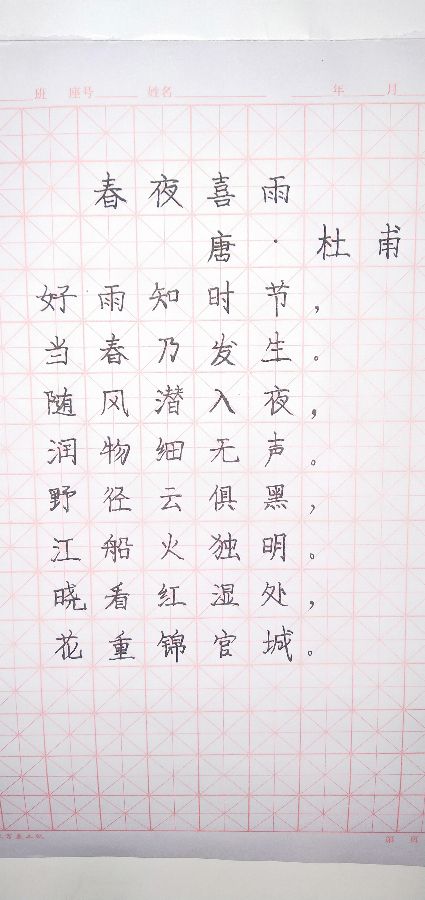 班 座号 姓名 年 月
春夜喜雨
唐·杜甫
好雨知时节，
当春乃发生。
随风潜入夜，
润物细无声。
野径云俱黑，
江船火独明。
晓看红湿处，
花重锦官城。
第 页